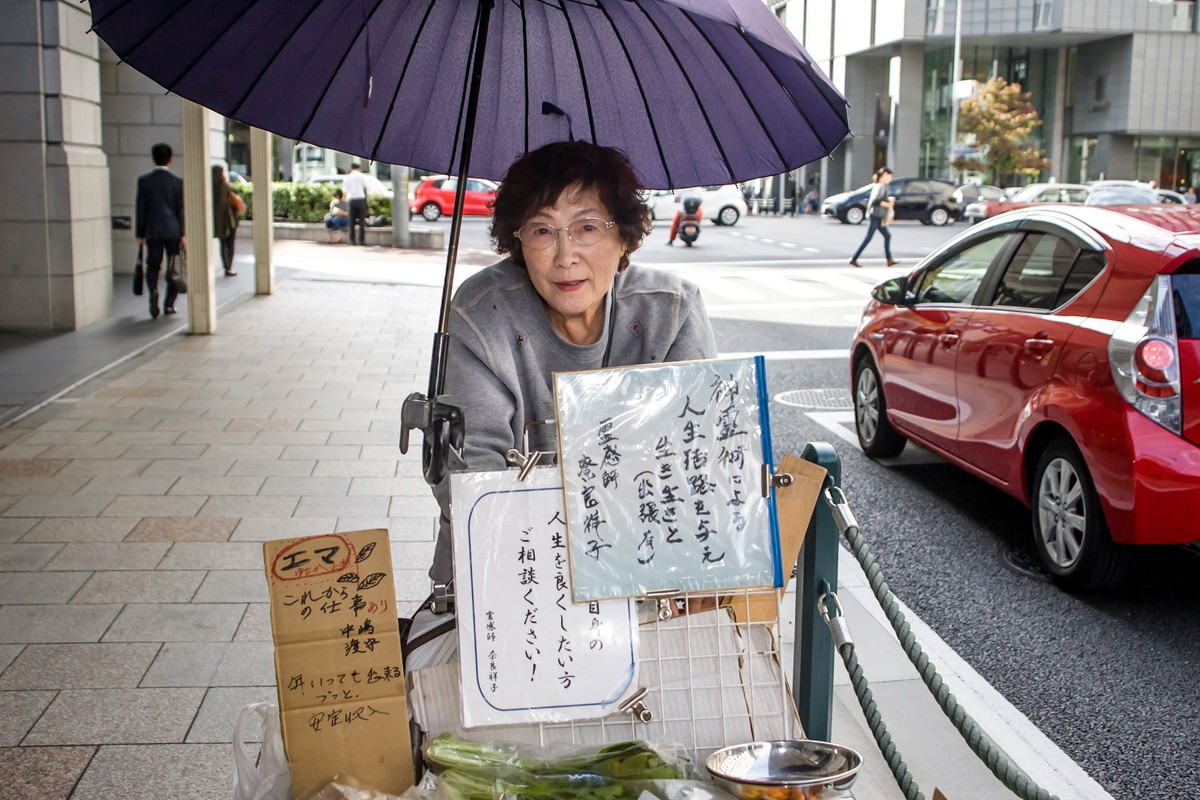 神霊術による
人生活路を与え
生き生きと
(出張有)
霊感師
祭宮祥子
自身の
人生を良くしたい方
ご相談ください!
霊感師 奈良祥子
エマ
これから
の仕事あり
中嶋
年いっても出来る
ずっと.
安定収入